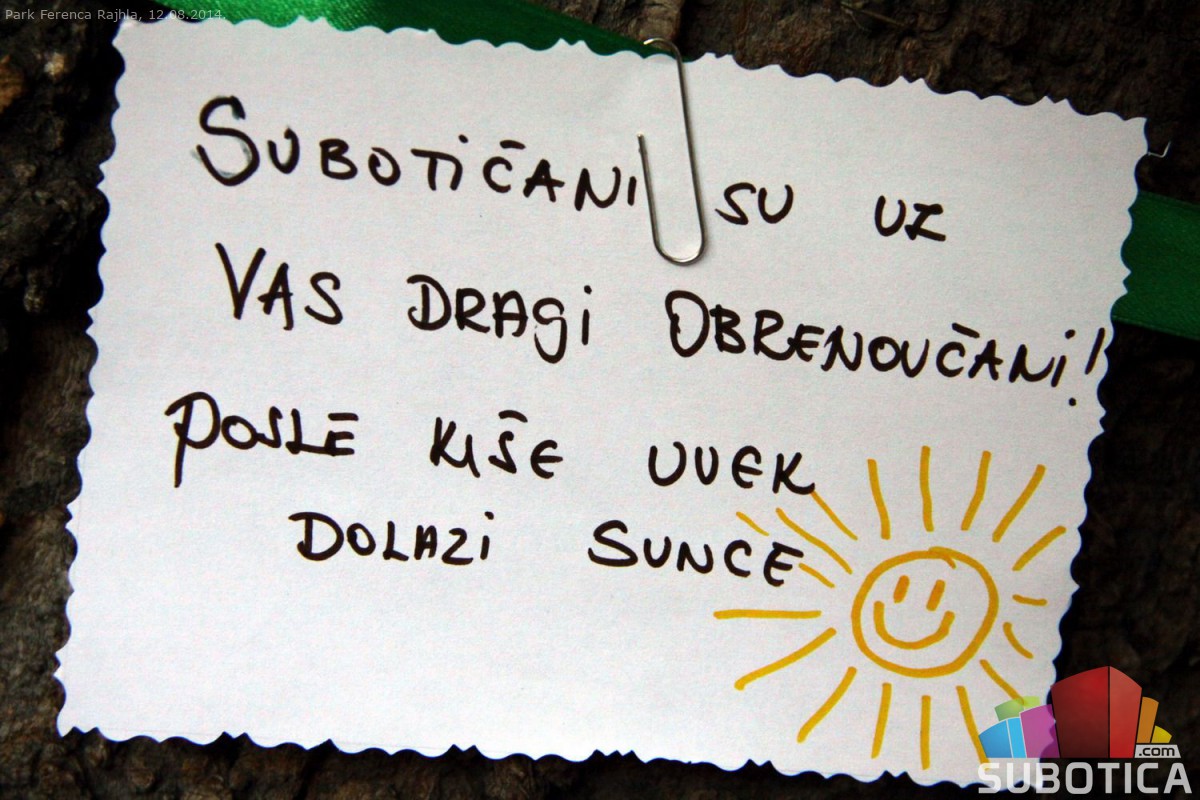 Park Ferenca Rajhla, 12.08.2014.
SUBOTIČANI SU UZ
VAS DRAGI OBRENOVČANI!
POSLE KIŠE UVEK
DOLAZI SUNCE
.com
SUBOTICA